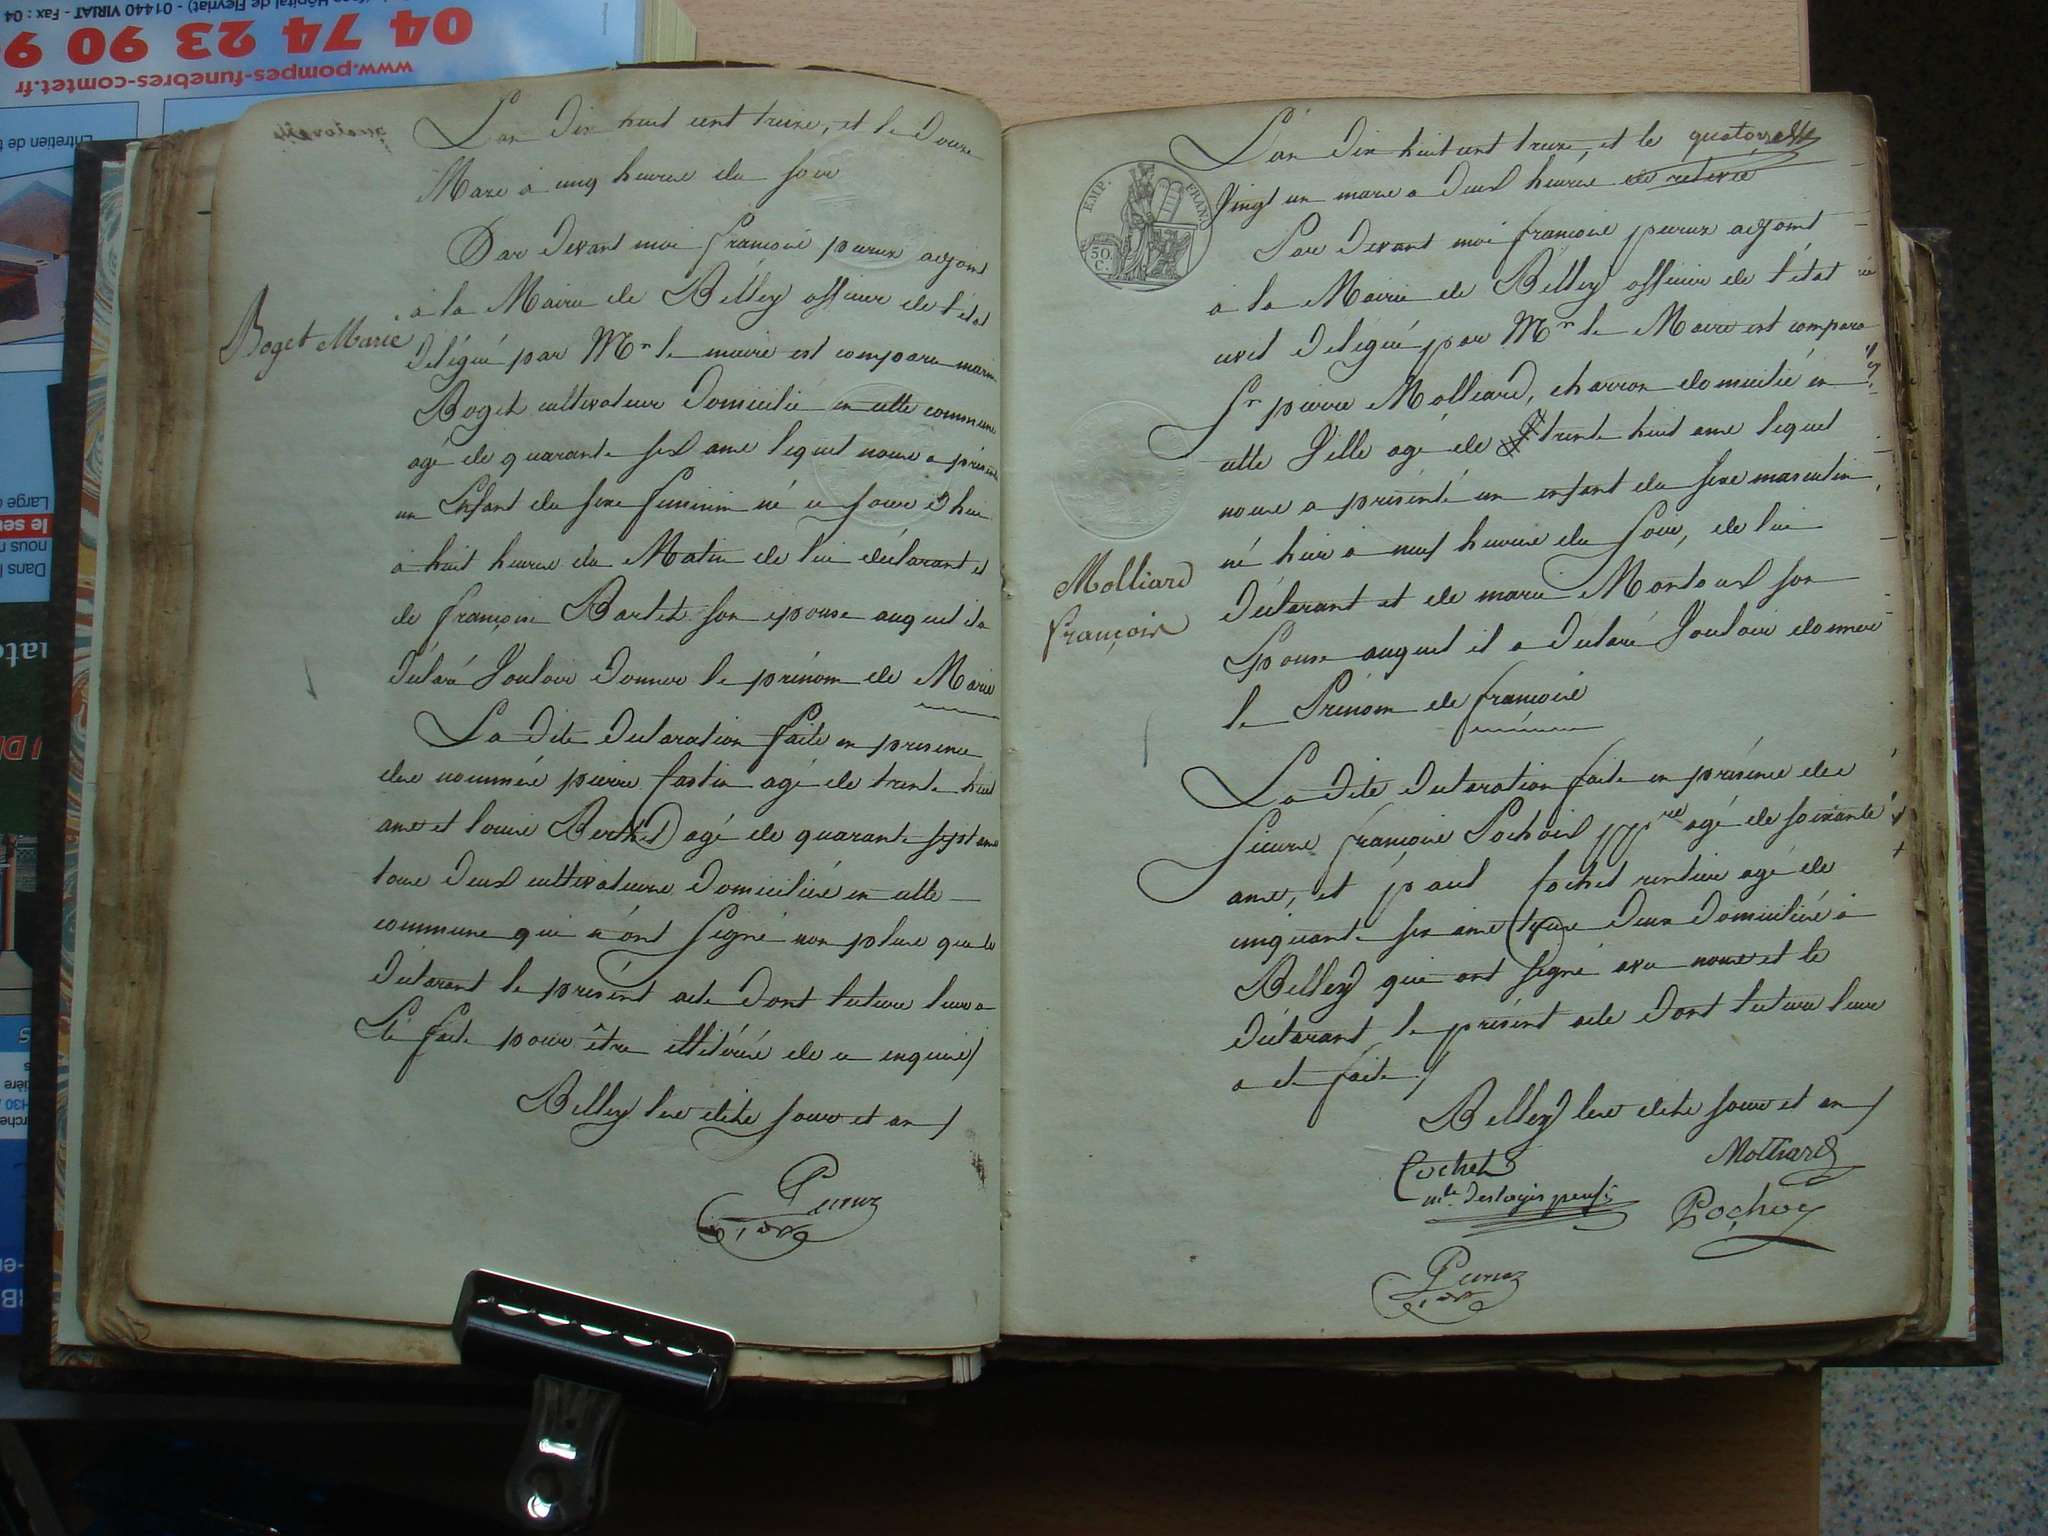 04 74 23 90 9
www.pompes-funebres-comtet.fr
L'an dix huit cent treize, et le douze
Mars à cinq heures du soir
Par devant moi françois peeruz adjoint
à la Mairie de Belley officier de l'état
Délégué par Mr le maire est comparu
Boget cultivateur Domicilié en cette commune
agé de quarante six ans lequel nous a présenté
un Enfant du sexe féminin né ce jour d'hui
à huit heures du Matin de lui déclarant et
de françoise Bartet son epouse auquel il a
déclaré Vouloir Donner le prénom de Marie
La dite declaration faite en presence
des nommés pierre agé de trente huit
ans et louis Berthet agé de quarante sept ans
tous deux cultivateurs Domiciliés en cette
commune qui n'ont signé non plus que le
déclarant le présent acte dont lecture leur a
Eté faite pour être illitérés de ce enquis
Belley les dits jour et an
Peeruz
Boget Marie
quatorze
L'an dix huit cent treize, et le
Vingt un mars a deux heures de relevée
Par devant moi françois peeruz adjoint
à la Mairie de Belley officier de l'état
civil délégué par Mr le Maire est comparu
Sr pierre Molliard, charron domicilié en
cette Ville agé de trente huit ans lequel
nous a présenté un enfant du sexe masculin
né hier à neuf heures du soir, de lui
déclarant et de marie son
Epouse auquel il a déclaré Vouloir donner
le Prénom de françois
La dite déclaration faite en présence des
sieurs françois Pochoix ppre agé de soixante
ans, et paul Cochet rentier agé de
cinquante six ans tous deux domiciliés à
Belley qui ont signé avec nous et le
déclarant le présent acte dont lecture leur
a été faite
Belley les dits jour et an
Cochet
Molliard
mal deslogis pensé
Pochoy
Peeruz
Molliard
françois
EMP. FRAN.
50.
C.